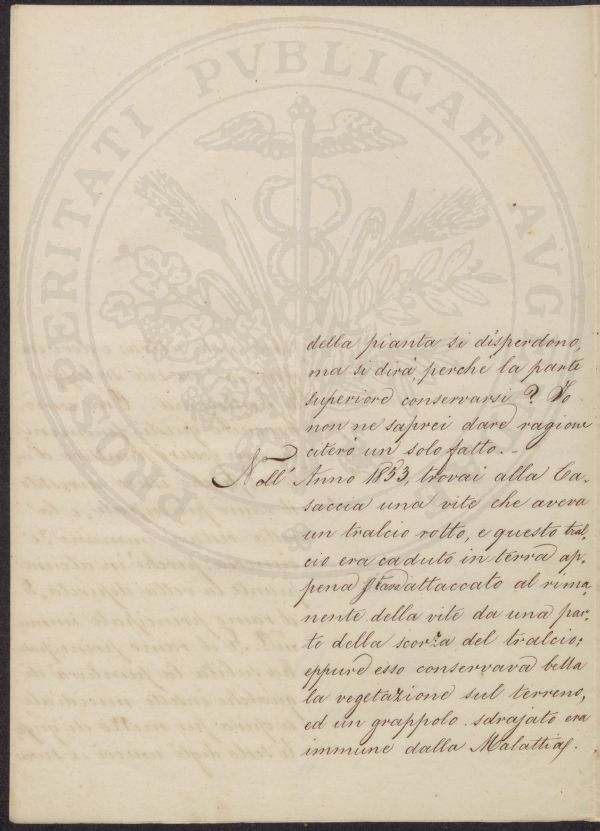 PROSPERITATI PVBLICAE AVG
della pianta si disperdono,
ma si dirà, perchè la parte
superiore conservarsi? Io
non ne saprei dare ragione
citerò un solo fatto._
Nell' Anno 1853, trovai alla Ca-
saccia una vite che aveva
un tralcio rotto, e questo tral-
cio era caduto in terra ap-
pena attaccato al rima-
nente della vite da una par-
te della scorza del tralcio;
eppure esso conservava bella
la vegetazione sul terreno,
ed un grappolo sdrajato era
immune dalla Malattia.